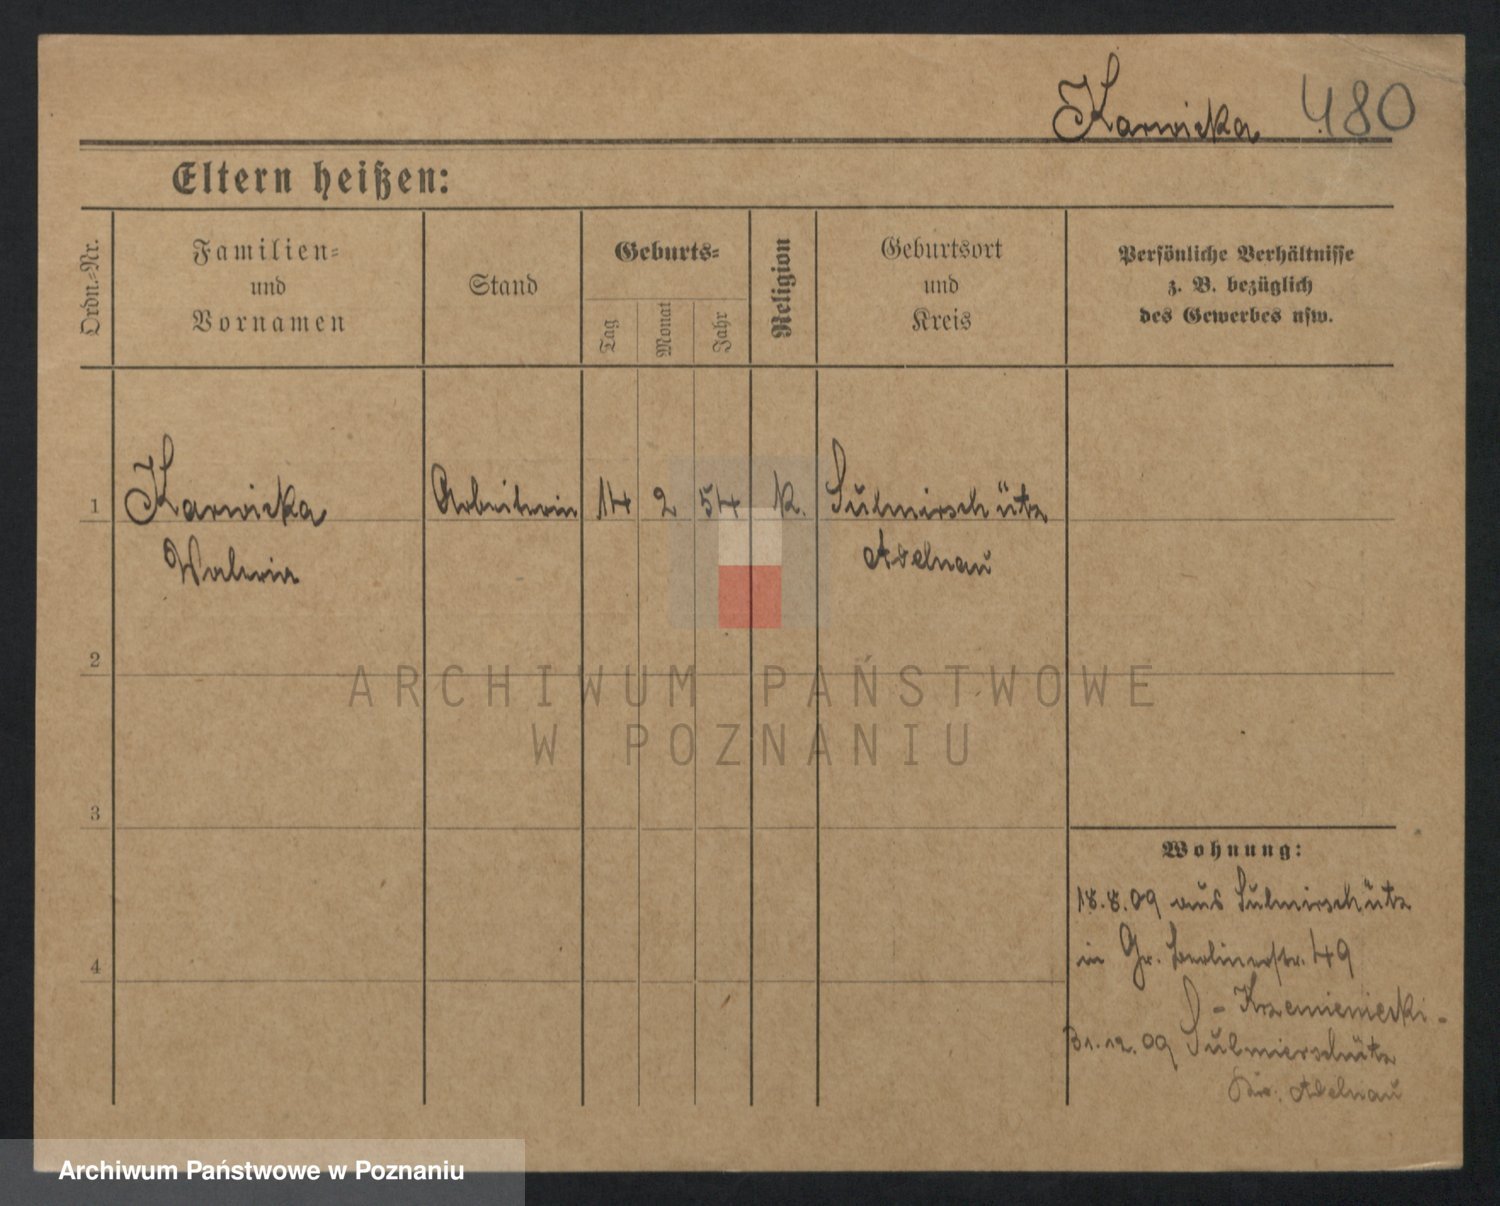 Karwicka 480
Eltern heißen:
Ordn.-Nr.
Familien-
und
Vornamen
Stand
Geburts-
Tag
Monat
Jahr
Religion
Geburtsort
und
Kreis
Persönliche Verhältnisse
z. B. bezüglich
des Gewerbes usw.
1 Karwicka Arbeiterin 14 2 54 K. Sulmirschütz
Waleria Adelnau
2
ARCHIWUM PAŃSTWOWE
W POZNANIU
3
Wohnung:
18.8.09 aus Sulmirschütz
in Gr. Berlinerstr. 49
4
- Krzemieniecki -
31.12.09 Sulmierschütz
Kr. Adelnau
Archiwum Państwowe w Poznaniu